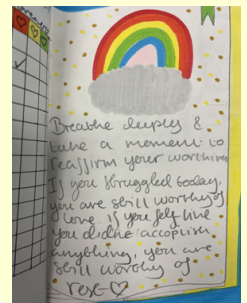 Breathe deeply &
take a moment to
reaffirm your worthiness
If you struggled today,
you are still worthy of
love. If you felt like
you didnt accoplish
anything, you are
still worthy of
rest